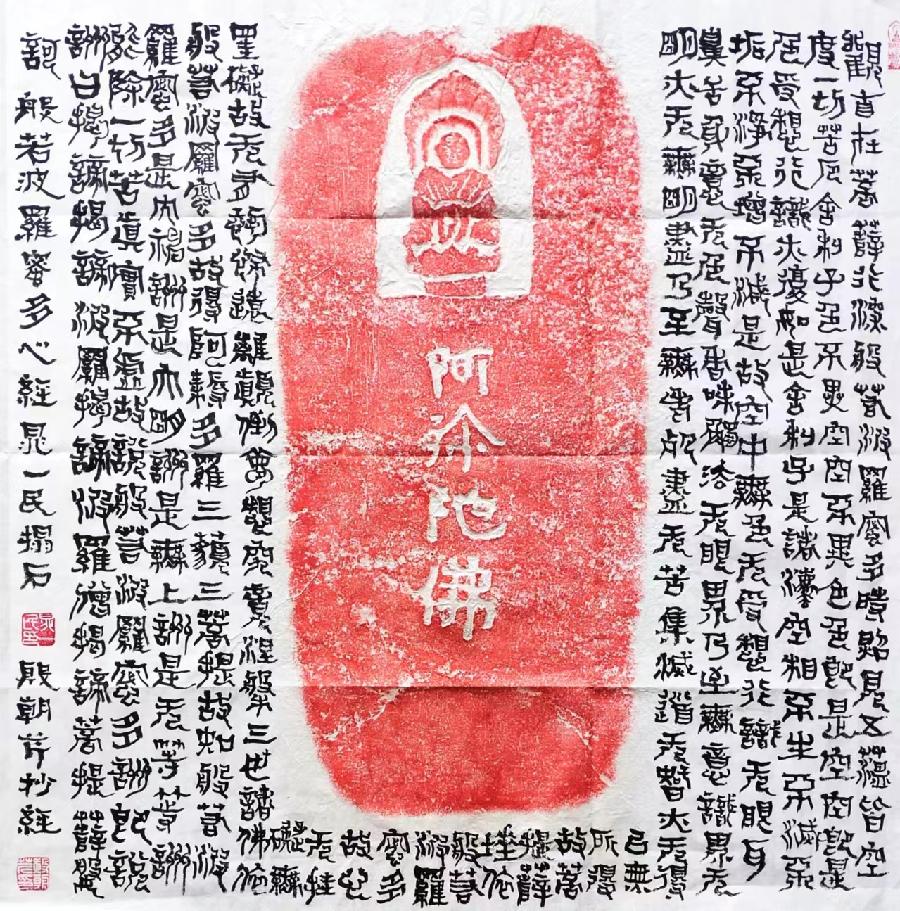 觀自在菩薩行深般若波羅蜜多時照見五蘊皆空
度一切苦厄舍利子色不異空空不異色色即是空空即是
色受想行識亦復如是舍利子是諸法空相不生不滅不
垢不淨不增不減是故空中無色无受想行識无眼耳
鼻舌身意无色聲香味觸法无眼界乃至無意識界无
明亦无無明盡乃至無老死盡无苦集滅道无智亦无得
已無
所得
故菩
提薩
埵依
般若
波羅
蜜多
故心
无挂
礙無
阿弥陀佛
罣礙故无有恐怖遠離顛倒夢想究竟涅槃三世諸佛依
般若波羅蜜多故得阿耨多羅三藐三菩提故知般若波
羅蜜多是大神咒是大明咒是無上咒是无等等咒
能除一切苦真實不虛故說般若波羅蜜多咒即說
咒曰揭諦揭諦波羅揭諦波羅僧揭諦菩提薩婆
訶 般若波羅蜜多心經晁一民搨石 殷朝芹抄經